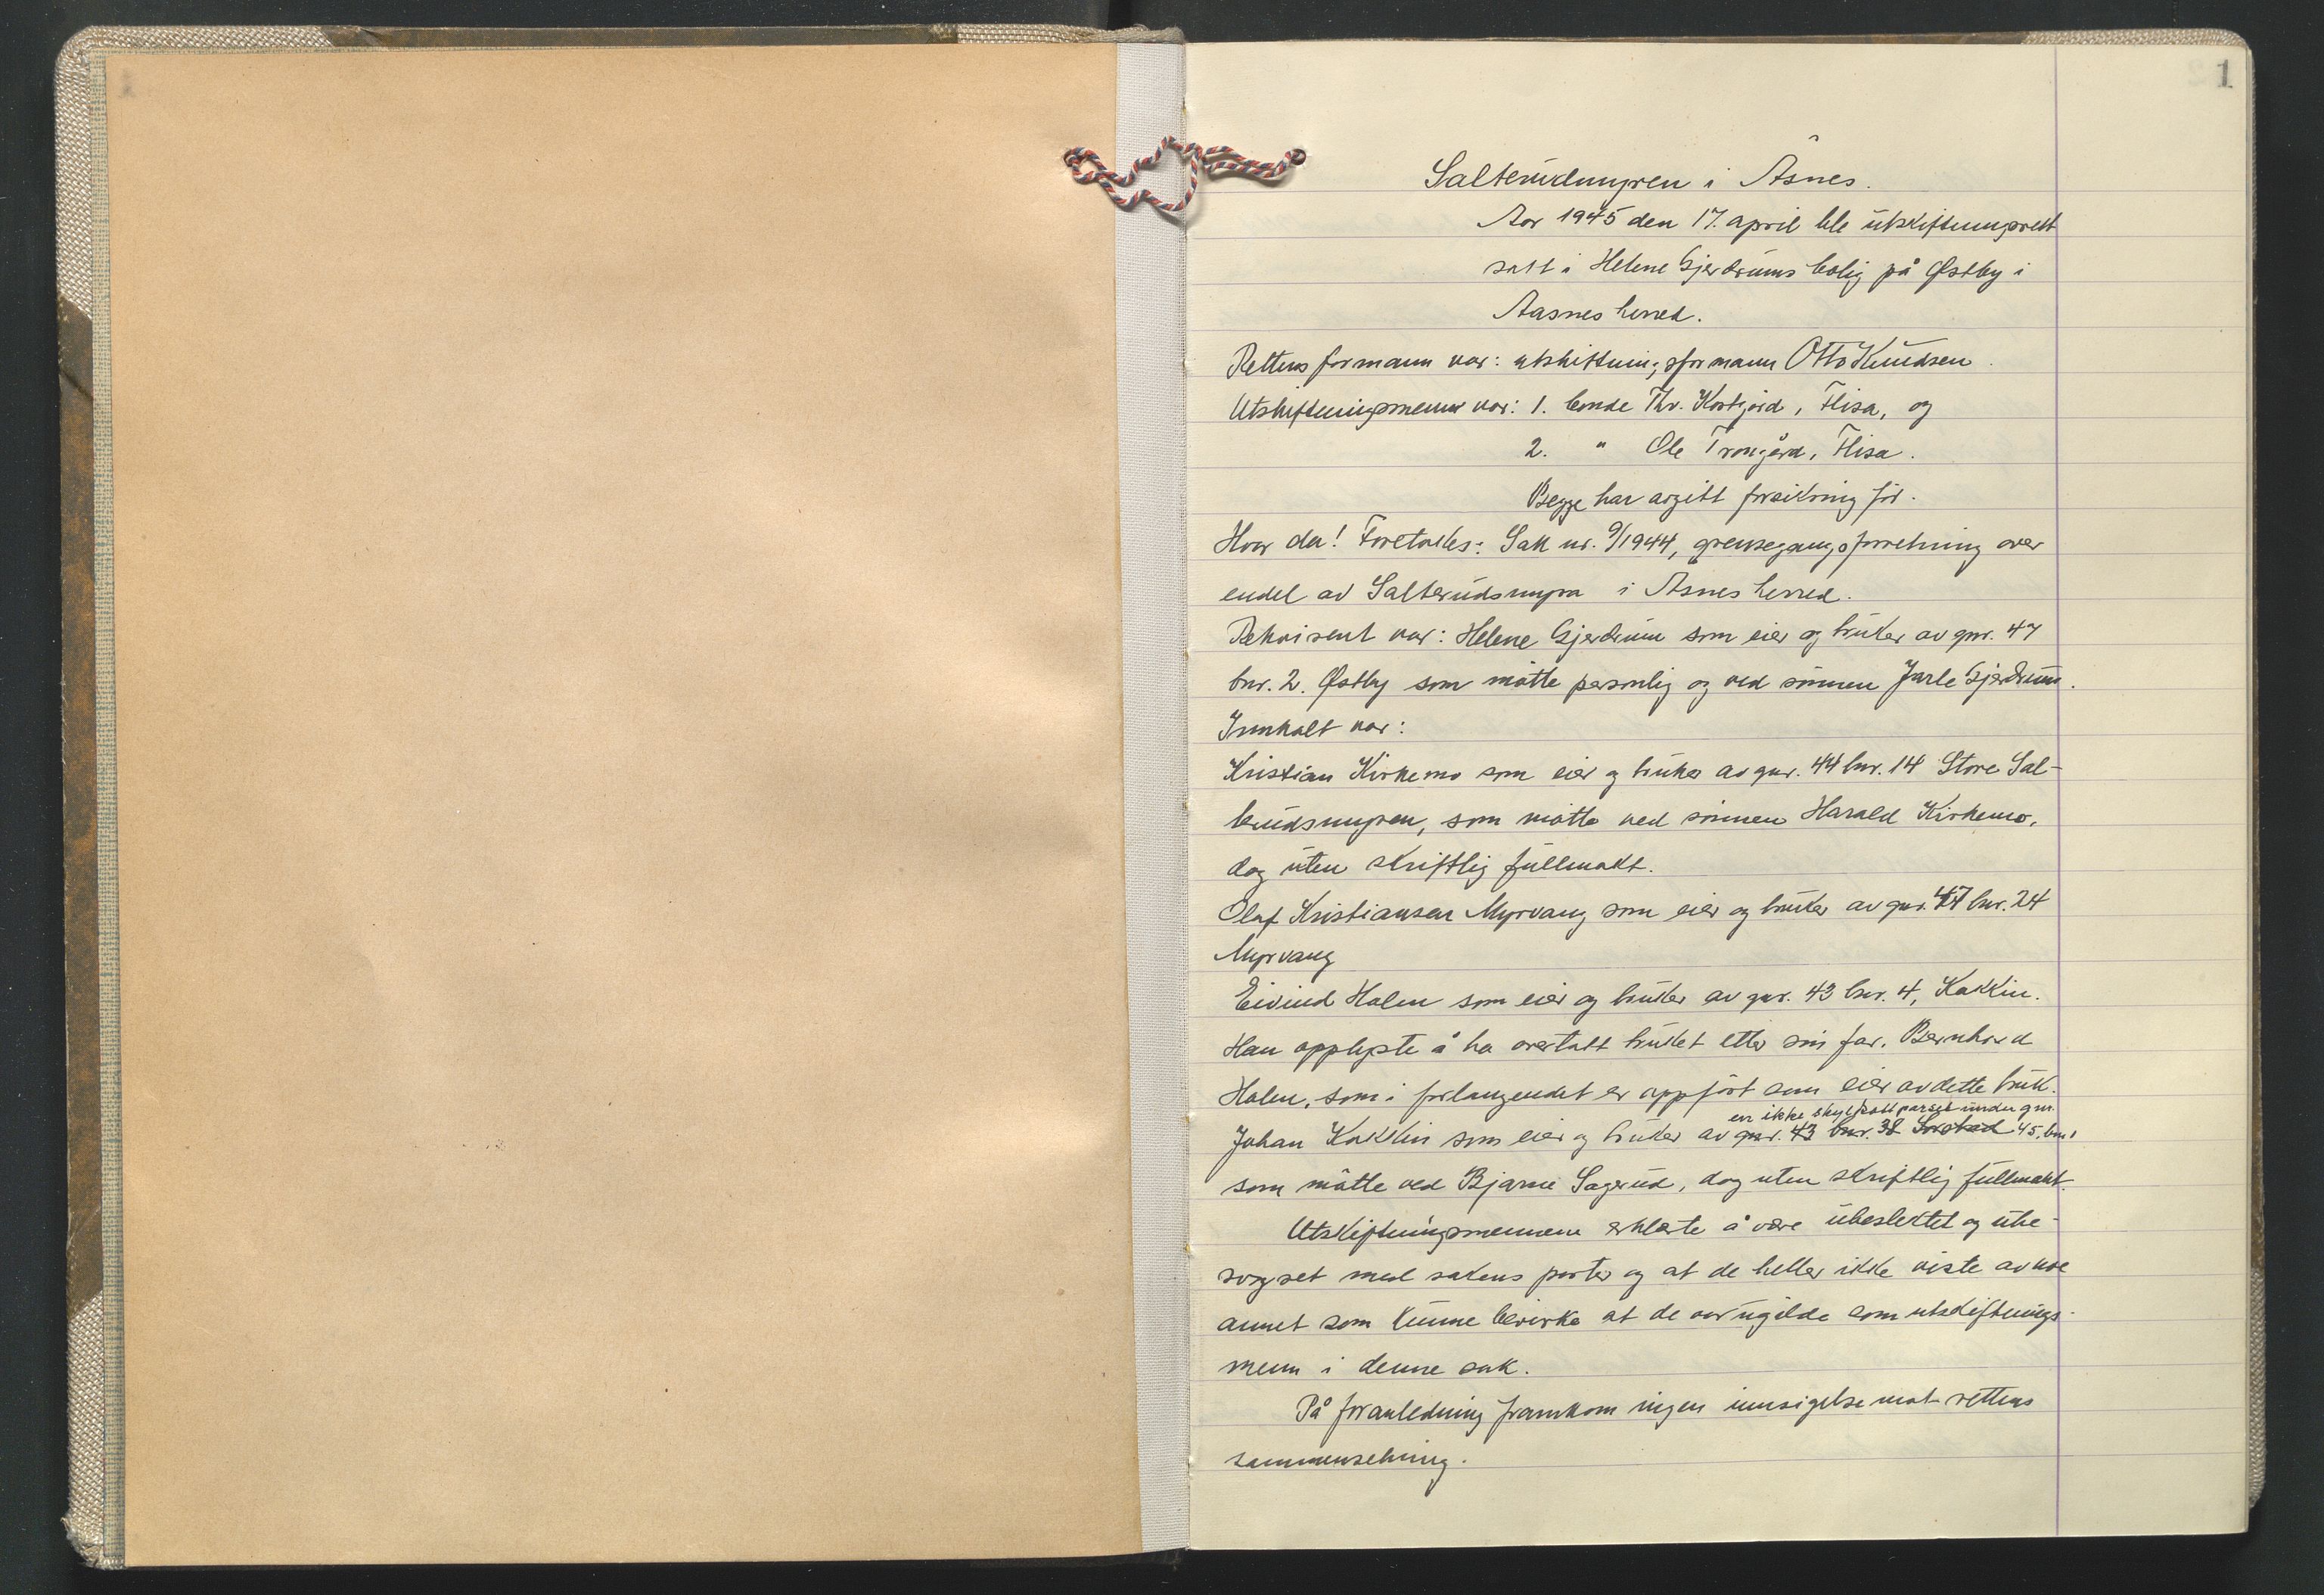 1
Salterudmyren i Åsnes.
Aar 1945 den 17. april ble utskiftningsrett
satt i Helene Gjerdrums bolig på Østby i
Aasnes herred.
Rettens formann var: utskiftningsformann Otto Knudsen.
Utskiftningsmenn var: 1. bonde Thv. Kostgård, Flisa, og
2. " Ole Trongård, Flisa.
Begge har avgitt forsikring før.
Hvor da! Foretokes: Sak nr. 9/1944, grensegangsforretning over
endel av Salterudsmyra i Åsnes herred.
Rekvirent var: Helene Gjerdrum som eier og bruker av gnr. 47
bnr. 2. Østby som møtte personlig og ved sønnen Jarle Gjerdrum.
Innkalt var:
Kristian Kirkemo som eier og bruker av gnr. 44 bnr. 14 Store Sal-
terudsmyren, som møtte ved sønnen Harald Kirkemo,
dog uten skriftlig fullmakt.
Olaf Kristiansen Myrvang som eier og bruker av gnr. 47 bnr. 24
Myrvang
Eivind Holen som eier og bruker av gnr. 43 bnr. 4, Kakkin.
Han opplyste å ha overtatt bruket etter sin far. Bernhard
Holen, som i forlangendet er oppført som eier av dette bruk.
en ikke skyldsatt parsel under gnr.
Johan Kakkin som eier og bruker av gnr. 43 bnr. 38 45, bnr 1
som møtte ved Bjarne Sagerud, dog uten skriftlig fullmakt.
Utskiftningsmennene erklærte å være ubeslektet og ube-
svogret med sakens parter og at de heller ikke viste av noe
annet som kunne bevirke at de var ugilde som utskiftnings-
menn i denne sak.
På foranledning framkom ingen innsigelse mot rettens
sammensetning.